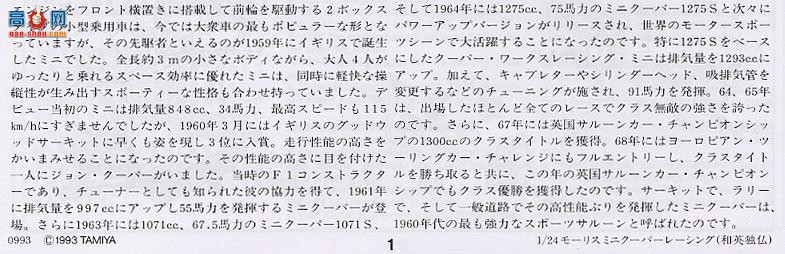 エンジンをフロント横置きに搭載して前輪を駆動する2ボックス
小型乗用車は、今では大衆車の最もポピュラーな形とな
っていますが、その先駆者といえるのが1959年にイギリスで誕生
したミニでした。全長約3mの小さなボディながら、大人4人が
ゆったりと乗れるスペース効率に優れたミニは、同時に軽快な操
縦性が生み出すスポーティーな性格も合わせ持っていました。デ
ビュー当初のミニは排気量848cc、34馬力、最高スピードも115
km/hにすぎませんでしたが、1960年3月にはイギリスのグッドウ
ッドサーキットに早くも姿を現し3位に入賞。走行性能の高さを
かいまみせることになったのです。その性能の高さに目を付けた
一人にジョン・クーパーがいました。当時のF1コンストラクタ
ーであり、チューナーとしても知られた彼の協力を得て、1961年
に排気量を997ccにアップし55馬力を発揮するミニクーパーが登
場。さらに1963年には1071cc、67.5馬力のミニクーパー1071S、
そして1964年には1275cc、75馬力のミニクーパー1275Sと次々に
パワーアップバージョンがリリースされ、世界のモータースポー
ツシーンで大活躍することになったのです。特に1275Sをベース
にしたクーパー・ワークスレーシング・ミニは排気量を1293ccに
アップ。加えて、キャブレターやシリンダーヘッド、吸排気管を
変更するなどのチューニングが施され、91馬力を発揮。64、65年
は、出場したほとんど全てのレースでクラス無敵の強さを誇った
のです。さらに、67年には英国サルーンカー・チャンピオンシッ
プの1300ccのクラスタイトルを獲得。68年にはヨーロピアン・ツ
ーリングカー・チャレンジにもフルエントリーし、クラスタイト
ルを勝ち取ると共に、この年の英国サルーンカー・チャンピオン
シップでもクラス優勝を獲得したのです。サーキットで、ラリー
で、そして一般道路でその高性能ぶりを発揮したミニクーパーは、
1960年代の最も強力なスポーツサルーンと呼ばれたのです。
0993 ©1993 TAMIYA
1
1/24モーリスミニクーパーレーシング(和英独仏)